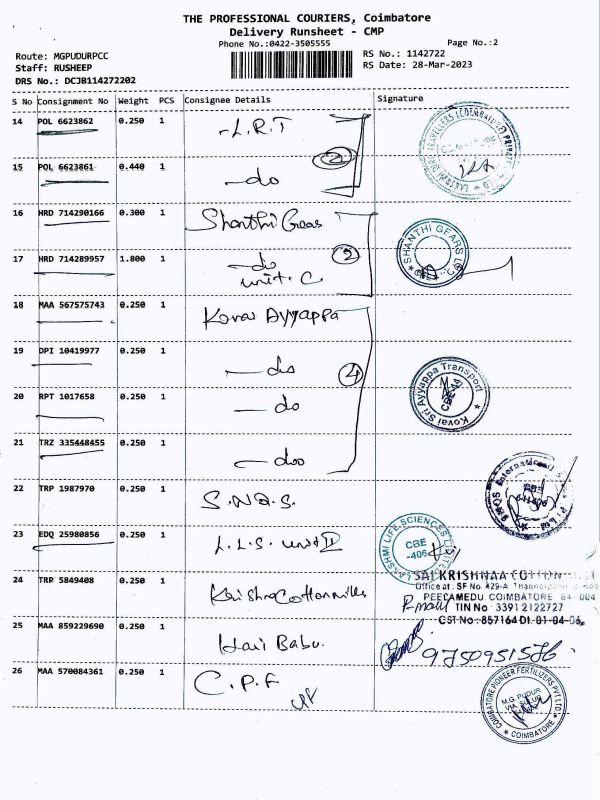 THE PROFESSIONAL COURIERS, Coimbatore
Delivery Runsheet - CMP
Phone No.:0422-3505555
Page No.:2
Route: MGPUDURPCC
RS No.: 1142722
Staff: RUSHEEP
RS Date: 28-Mar-2023
DRS No.: DCJB114272202
S No Consignment No Weight PCS Consignee Details Signature
14 POL 6623862 0.250 1 -L.R.T
15 POL 6623861 0.440 1 -do
2
16 HRD 714290166 0.300 1 Shanthi Gears
17 HRD 714289957 1.800 1 -do
unit. C
2
SHANTHI GEARS
18 MAA 567575743 0.250 1 Kovai Ayyappa
19 DPI 10419977 0.250 1 -do
4
20 RPT 1017658 0.250 1 -do
Kovai Sri Ayyappa Transport
CBE-44
21 TRZ 335448455 0.250 1 -do
22 TRP 1987970 0.250 1 S.N.Q.S.
International
23 EDQ 25980856 0.250 1 L.L.S. unit II
LAKSHMI LIFE SCIENCES
CBE
24 TRP 5849408 0.250 1 Krishna Cotton mills
SAI KRISHNAA COTTON
Office at . SF No 429-A
PEELAMEDU COIMBATORE 641 004
TIN No 33912122727
CST No : 857164 Dt. 01-04-06
25 MAA 859229690 0.250 1 Hari Babu.
9750951576
26 MAA 570084361 0.250 1 C.P.F
COIMBATORE PIONEER FERTILIZERS PVT LTD.
M.G. PUDUR
VIA. SULUR
COIMBATORE